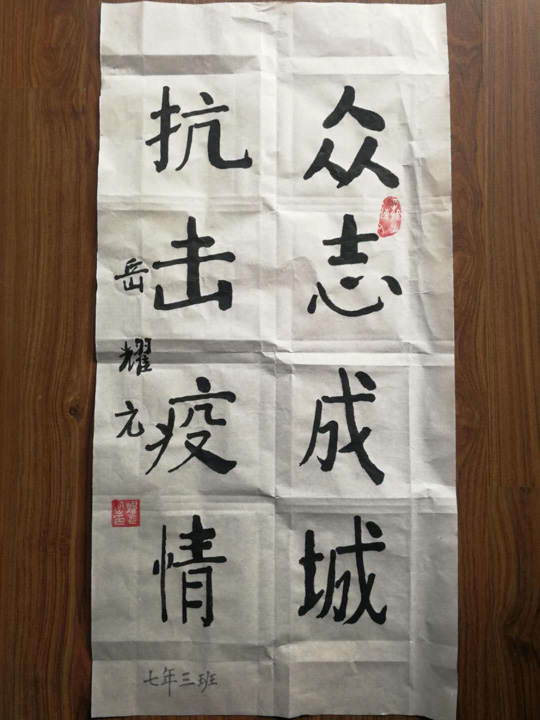 众志成城
抗击疫情
岳耀元
七年三班